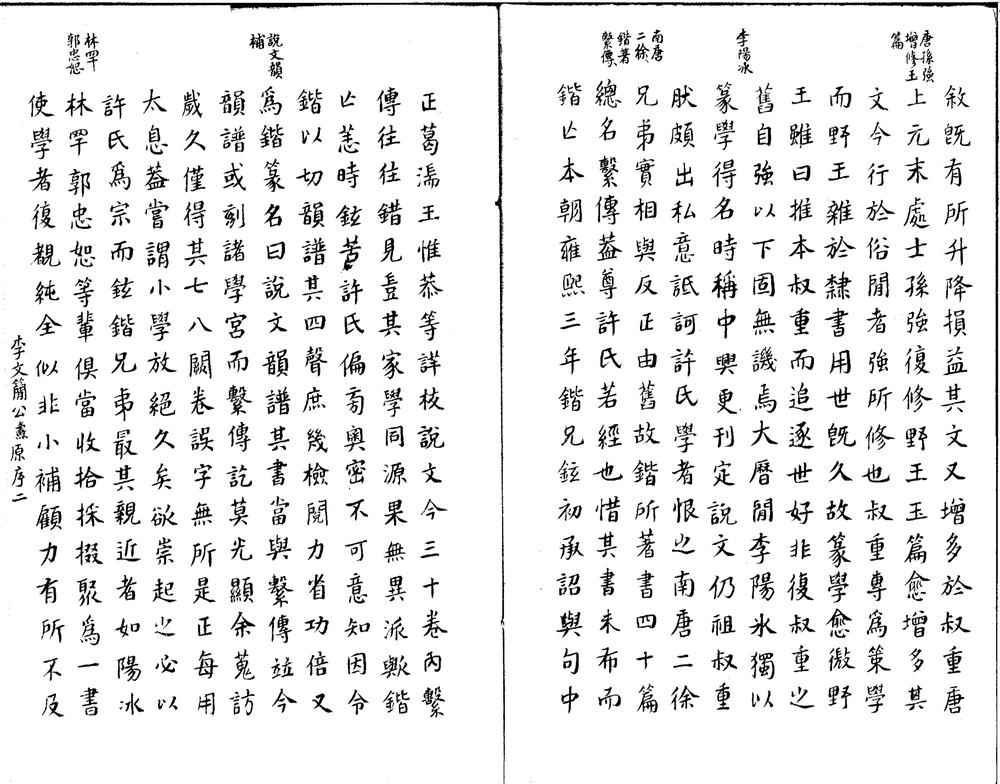 唐孫強
增修玉
篇
李陽冰
南唐
二徐
鍇著
繫傳
敘旣有所升降損益其文又增多於叔重唐
上元末處士孫強復修野王玉篇愈增多其
文今行於俗閒者強所修也叔重專爲篆學
而野王雜於隸書用世旣久故篆學愈微野
王雖曰推本叔重而追逐世好非復叔重之
舊自強以下固無譏焉大曆閒李陽冰獨以
篆學得名時稱中興更刊定說文仍祖叔重
肰頗出私意詆訶許氏學者恨之南唐二徐
兄弟實相與反正由舊故鍇所著書四十篇
總名繫傳葢尊許氏若經也惜其書未布而
鍇亾本朝雍熙三年鍇兄鉉初承詔與句中
說文韻
補
林罕
郭忠恕
正葛湍王惟恭等詳校說文今三十卷內繫
傳往往錯見豈其家學同源果無異派歟鍇
亾恙時鉉苦許氏偏旁奧密不可意知因令
鍇以切韻譜其四聲庶幾檢閱力省功倍又
爲鍇篆名曰說文韻譜其書當與繫傳竝今
韻譜或刻諸學宮而繫傳訖莫光顯余蒐訪
歲久僅得其七八闕卷誤字無所是正每用
太息葢嘗謂小學放絕久矣欲崇起之必以
許氏爲宗而鉉鍇兄弟最其親近者如陽冰
林罕郭忠恕等輩俱當收拾採掇聚爲一書
使學者復覩純全似非小補顧力有所不及
李文簡公燾原序二